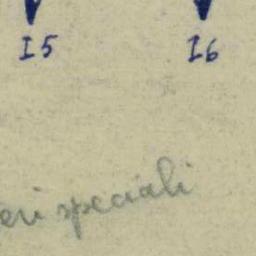 I5 I6
eri speciali